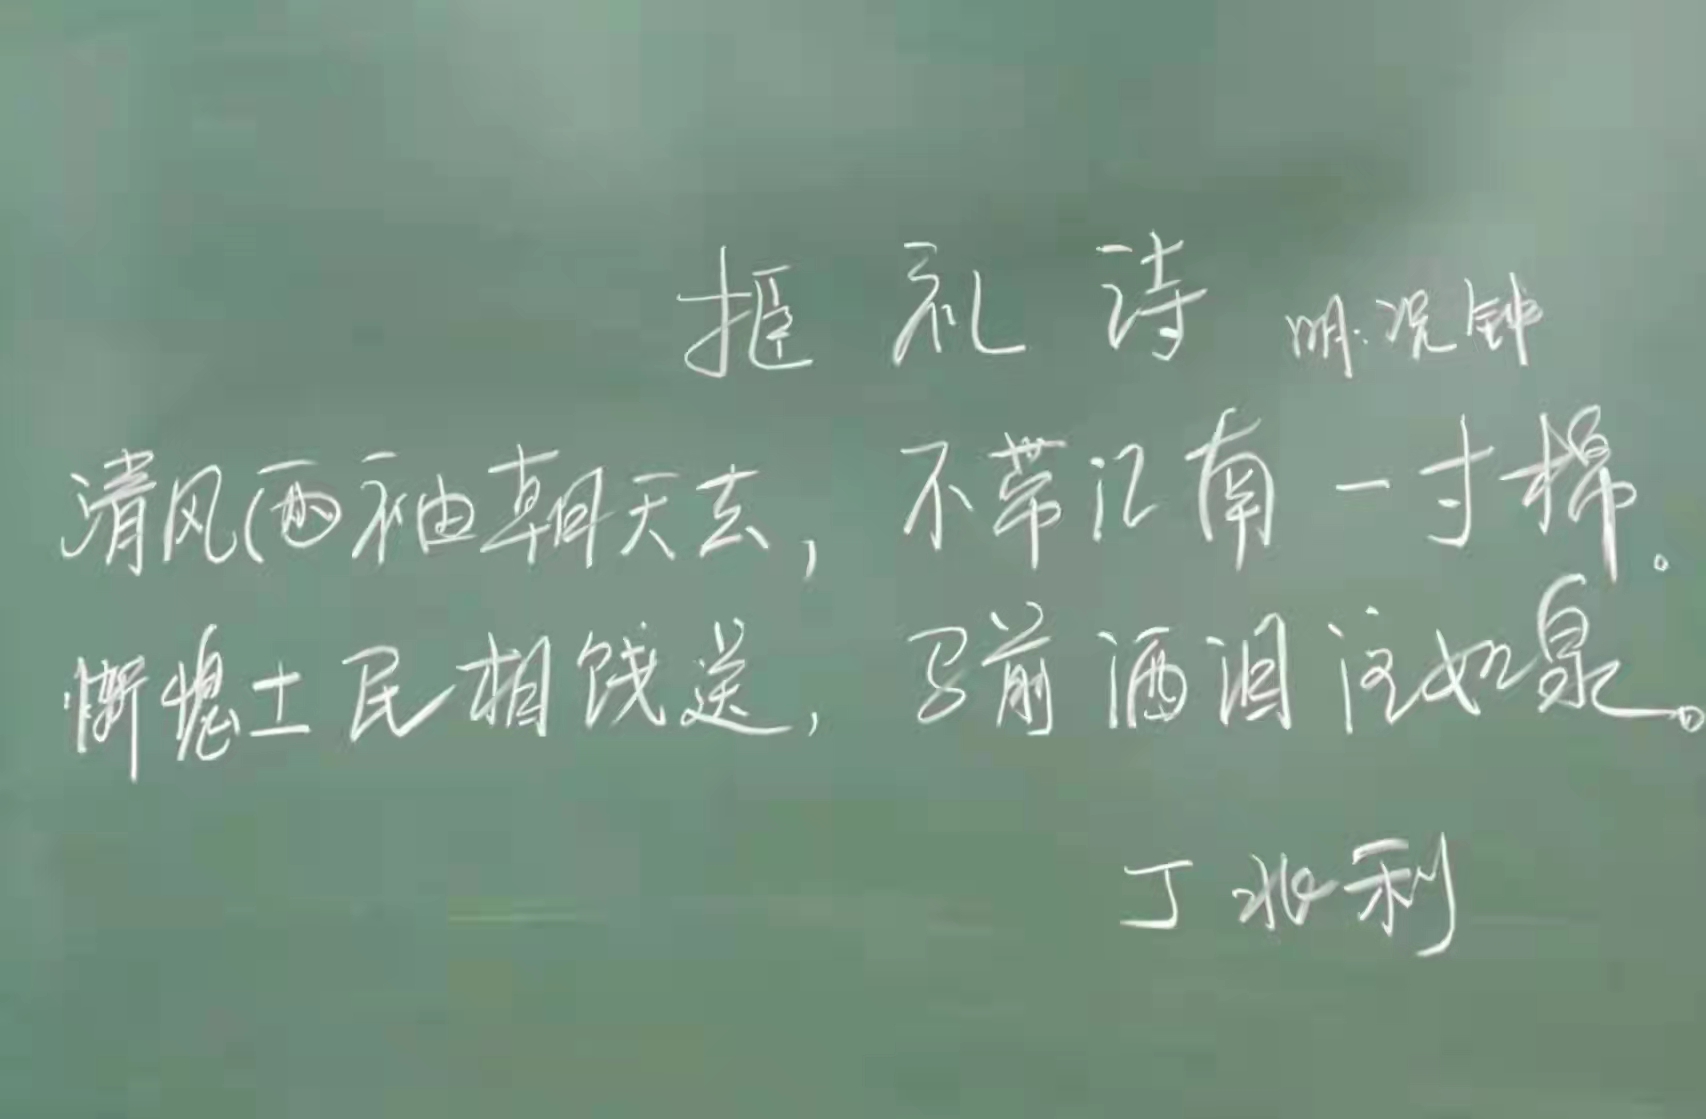 拒礼诗 明·况钟
清风两袖朝天去，不带江南一寸棉。
惭愧士民相饯送，马前洒泪注如泉。
丁 利